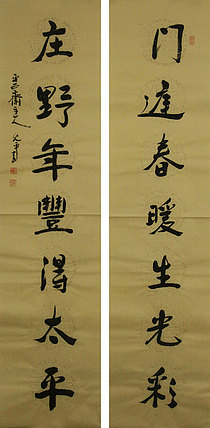 门迋春暖生光彩
庄野年豐淂太平